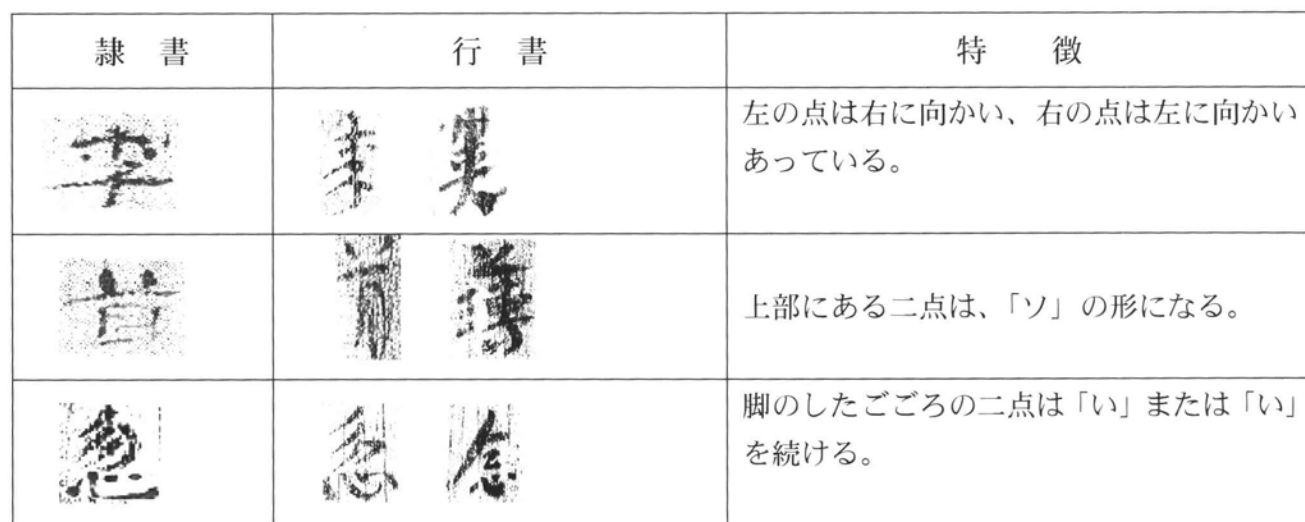 隷 書
行 書
特 徴
左の点は右に向かい、右の点は左に向かい
あっている。
上部にある二点は、「ソ」の形になる。
脚のしたごごろの二点は「い」または「い」
を続ける。